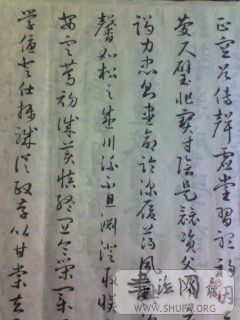 正空谷傳聲虛堂習聽禍
慶尺璧非寶寸陰是競資父事
竭力忠則盡命臨深履薄夙
馨如松之盛川流不息淵澄取映
安定篤初誠美慎終宜令榮業
學優登仕攝職從政存以甘棠去
書法网
WWW.SHUFA.ORG